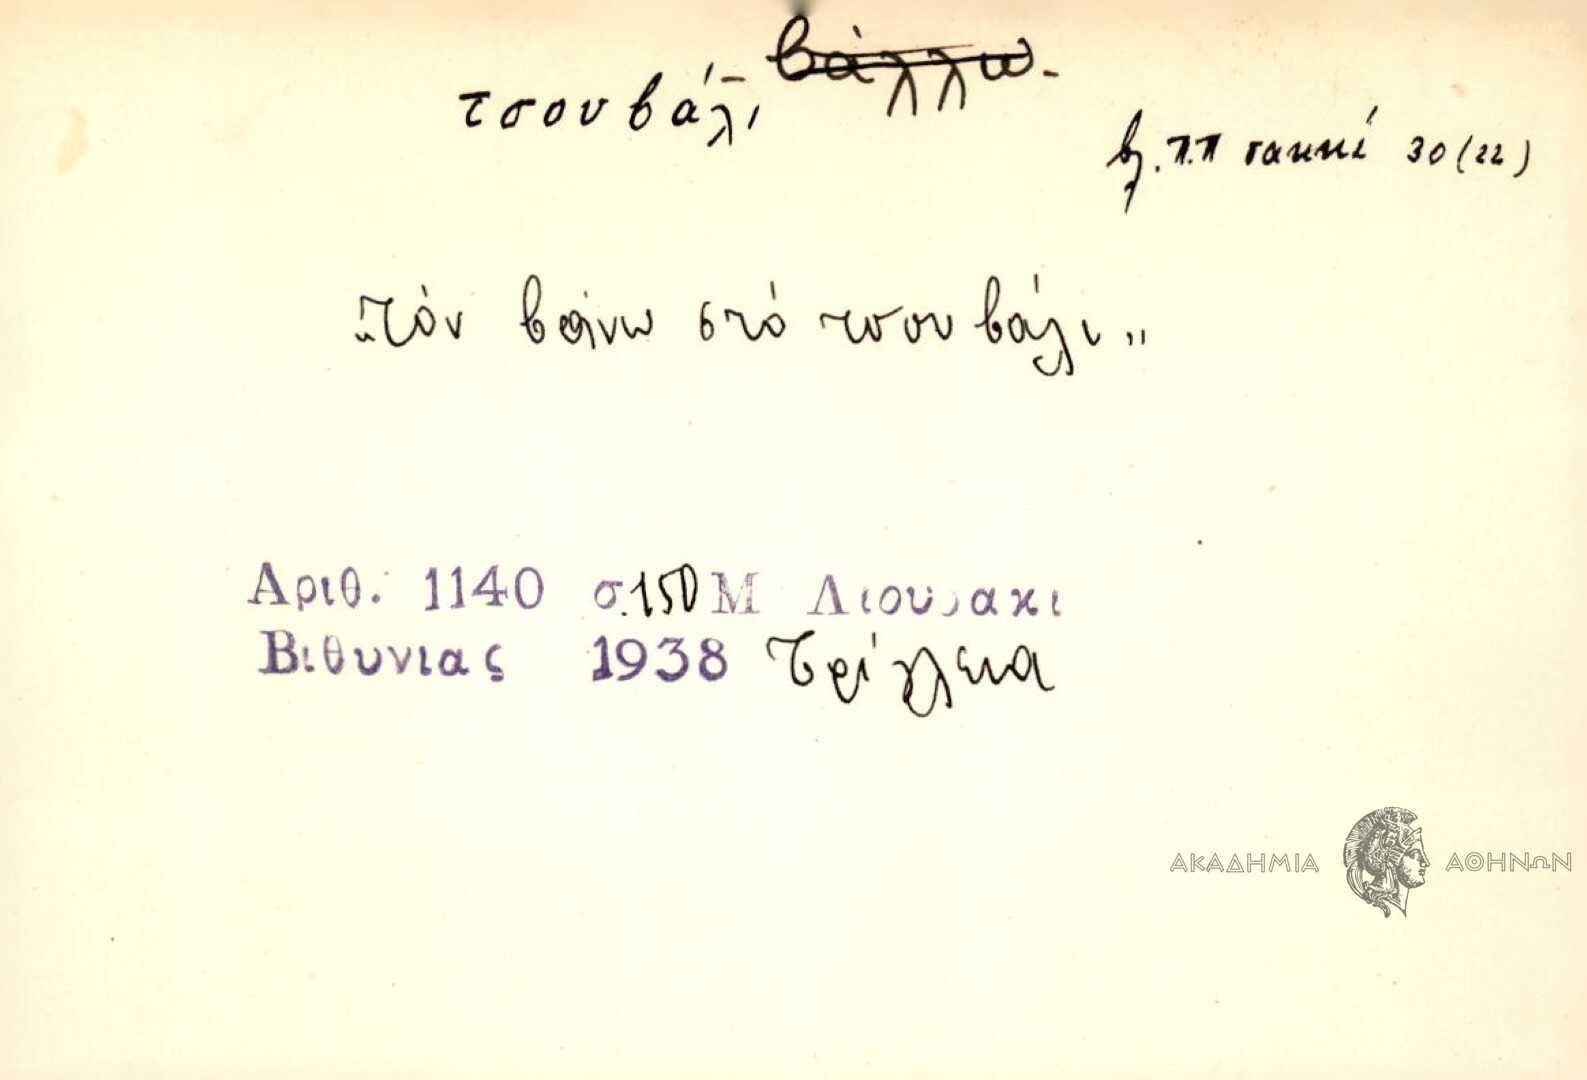 τσουβάλι, - βάλλω -
βλ. Π.Π σακκί 30 (22)
„Τόν βάνω στό τσουβάλι„
Αριθ. 1140 σ.150 Μ Λιουδακι
Βιθυνιας 1938 Τρίγλεια
ΑΚΑΔΗΜΙΑ ΑΘΗΝΩΝ